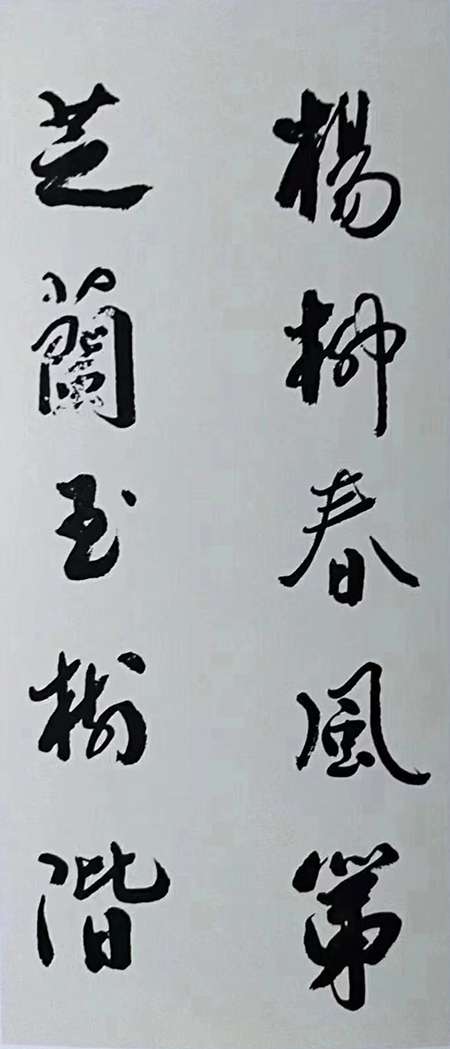 楊柳春風第
芝蘭玉樹階